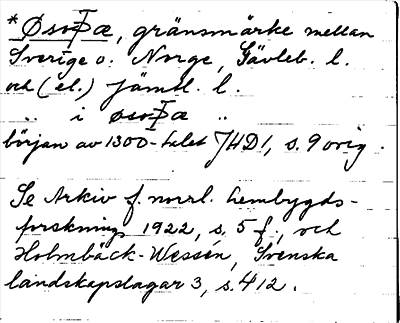 *Øsoꝥæ, gränsmärke mellan
Sverige o. Norge, Gävleb. l.
och (el.) Jämtl. l.
.. i øsoꝥæ ..
början av 1300-talet JHD1, s. 9 orig.
Se Arkiv f. norrl. hembygds-
forskning 1922, s. 5 f., och
Holmbäck-Wessén, Svenska
landskapslagar 3, s. 412.